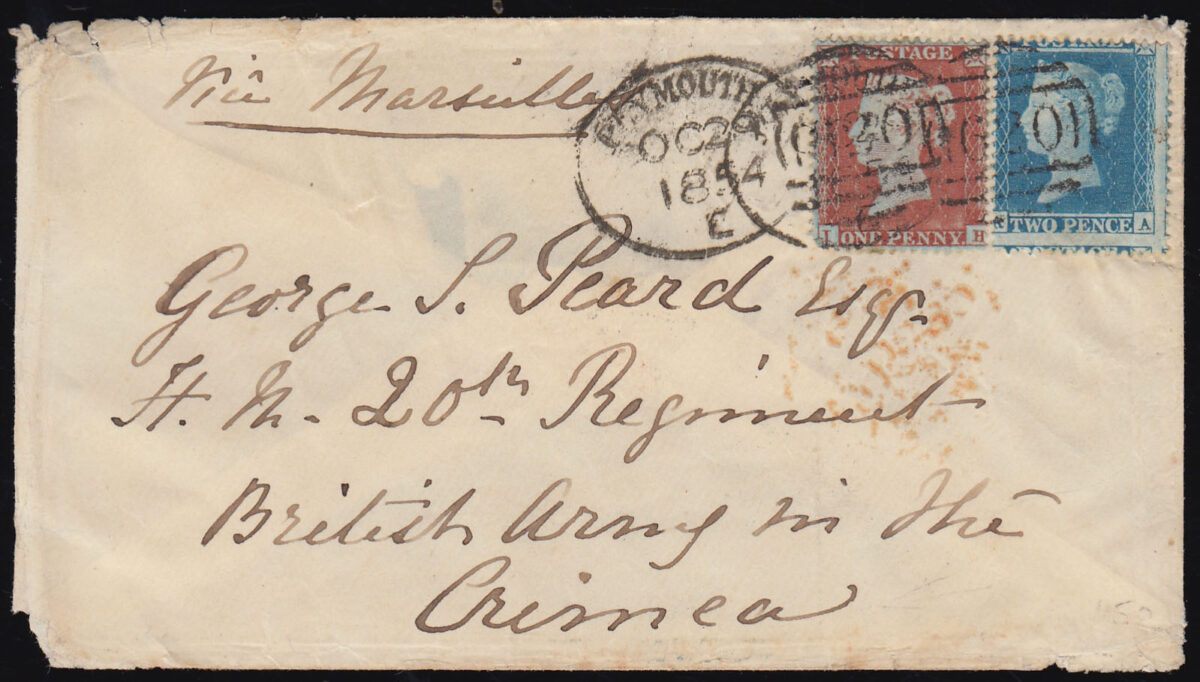 Via Marseille
PLYMOUTH
OC 2
1854
E
POSTAGE
I ONE PENNY H
TWO PENCE A
620
George S. Peard Esq.
H. M. 20th Regiment
British Army in the
Crimea